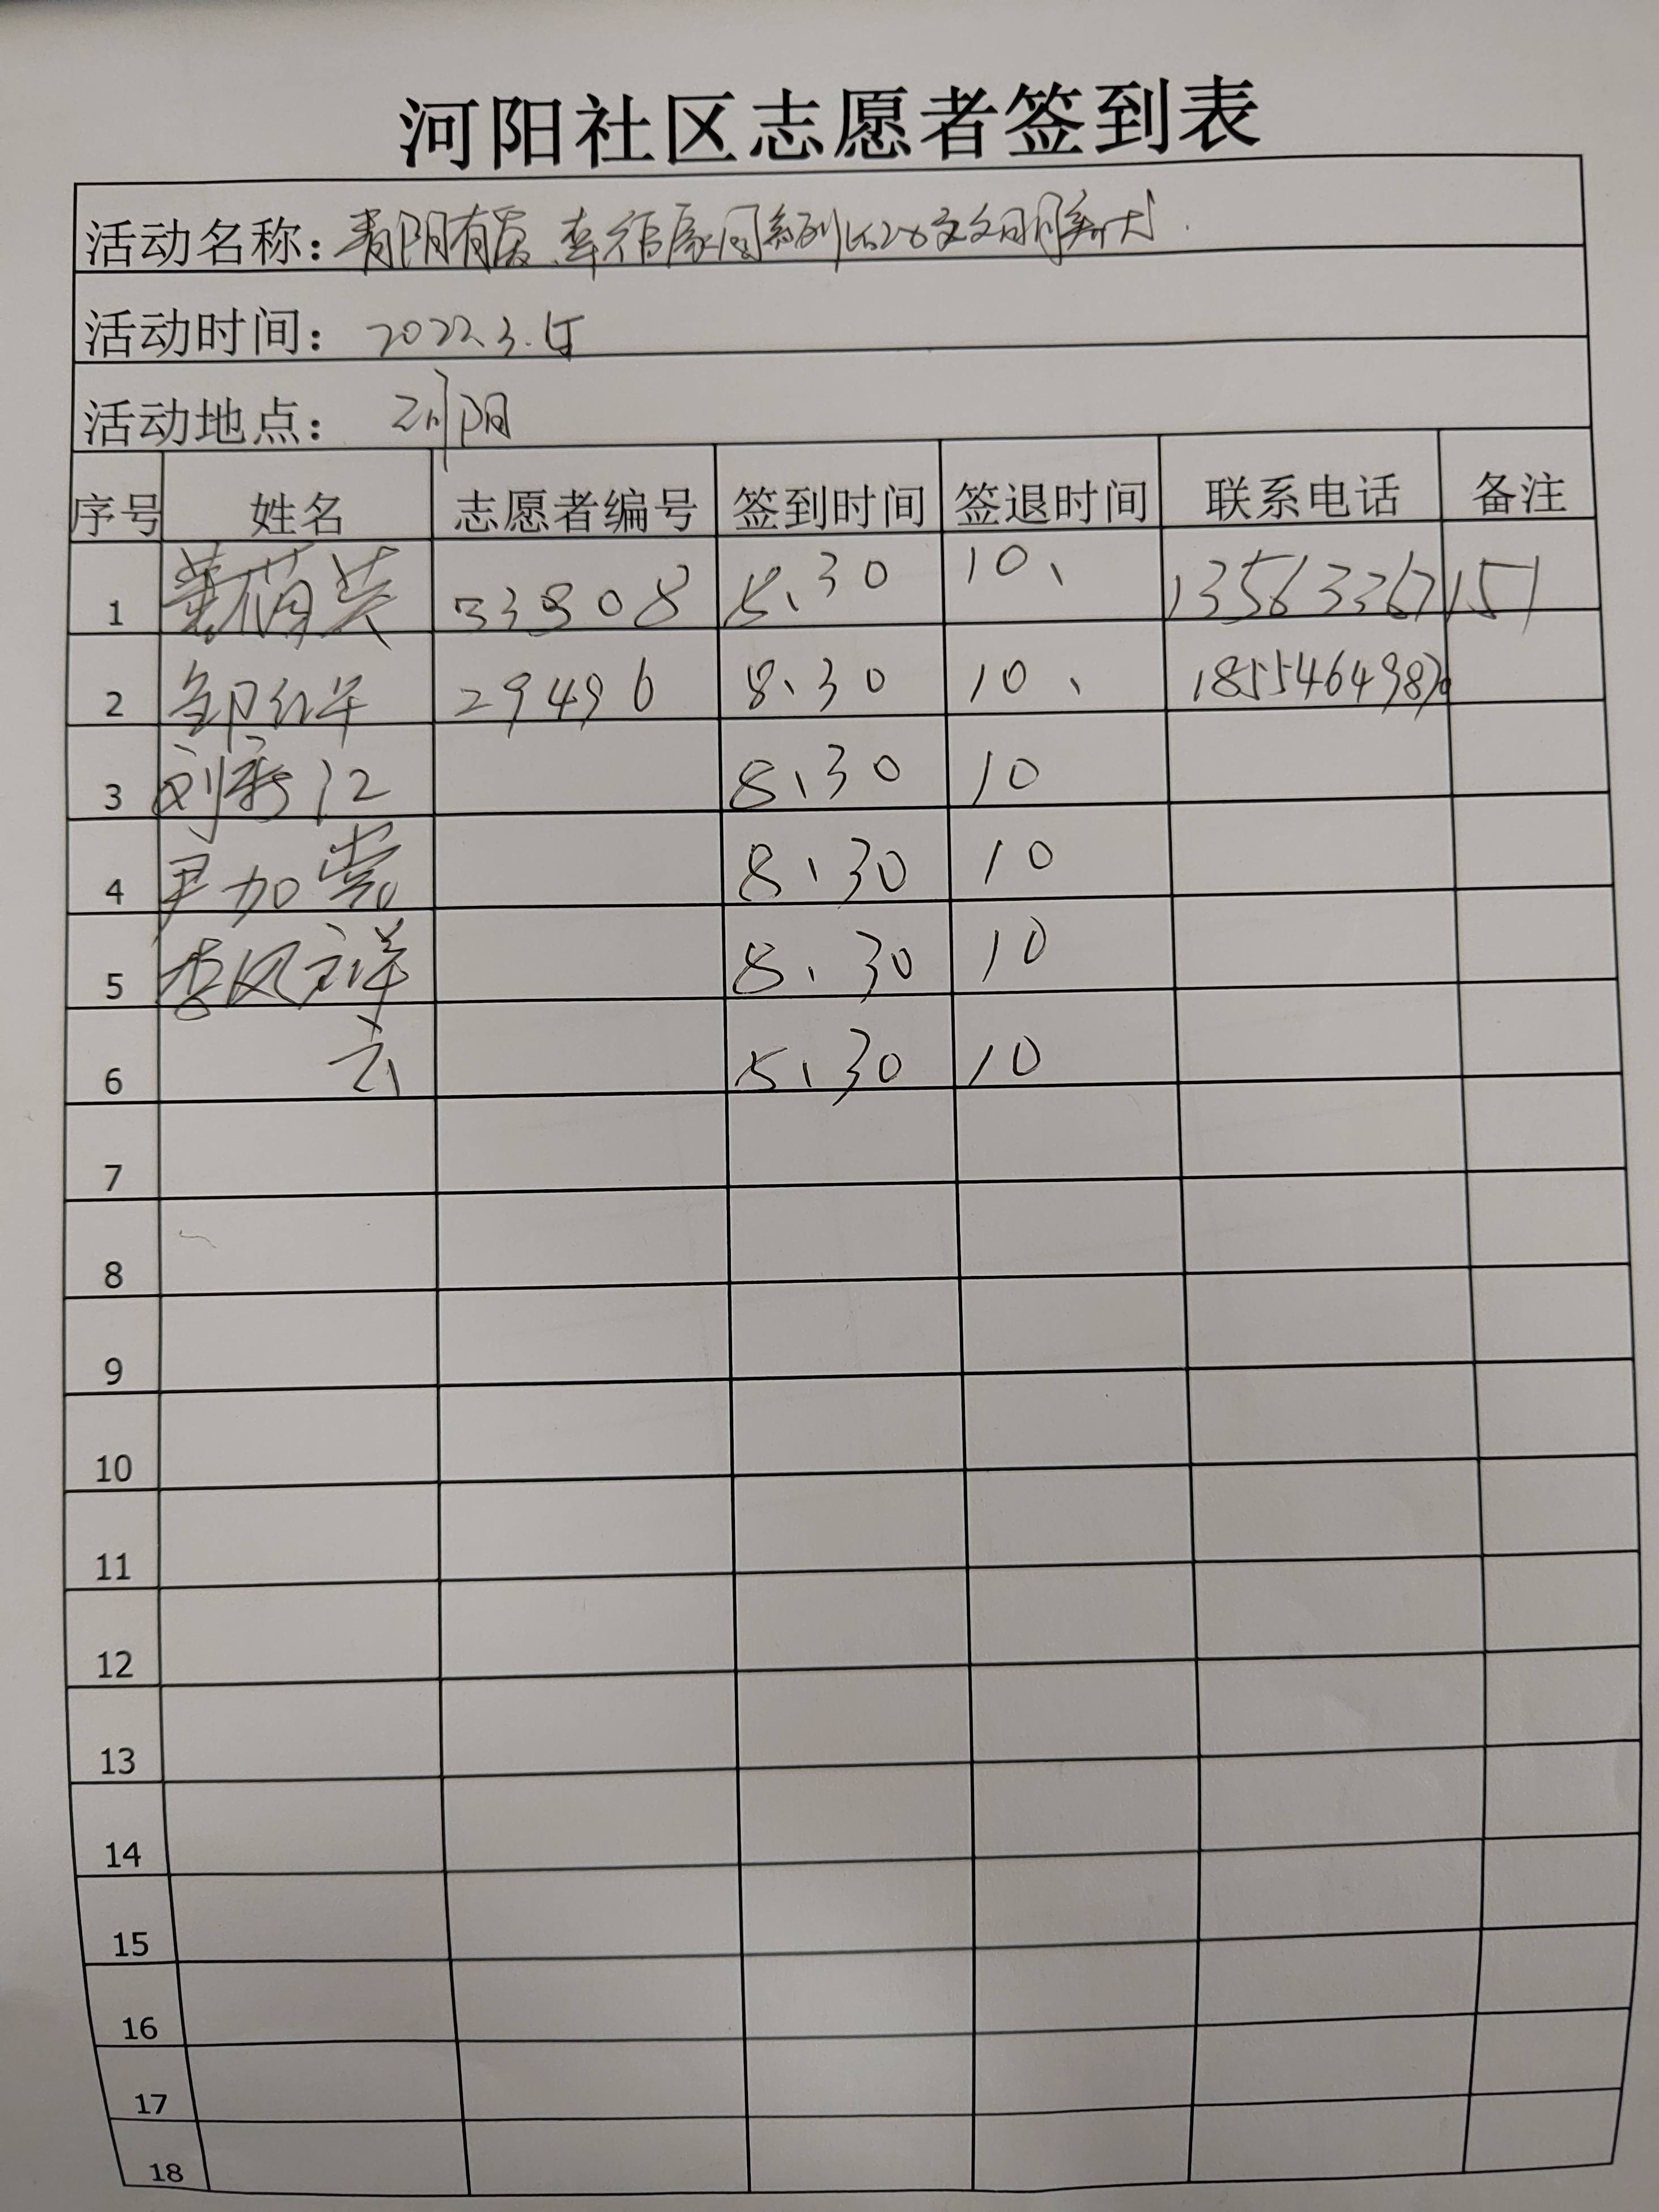 河阳社区志愿者签到表
活动名称：青阳有爱.幸福家园系列
活动时间：2022.3.
活动地点：河阳
序号 姓名 志愿者编号 签到时间 签退时间 联系电话 备注
1 33308 8、30 10、 13563367151
2 邹红华 29496 8、30 10、 1855464987
3 刘秀江 8、30 10
4 尹加常 8、30 10
5 李风祥 8、30 10
6 云 8、30 10
7
8
9
10
11
12
13
14
15
16
17
18